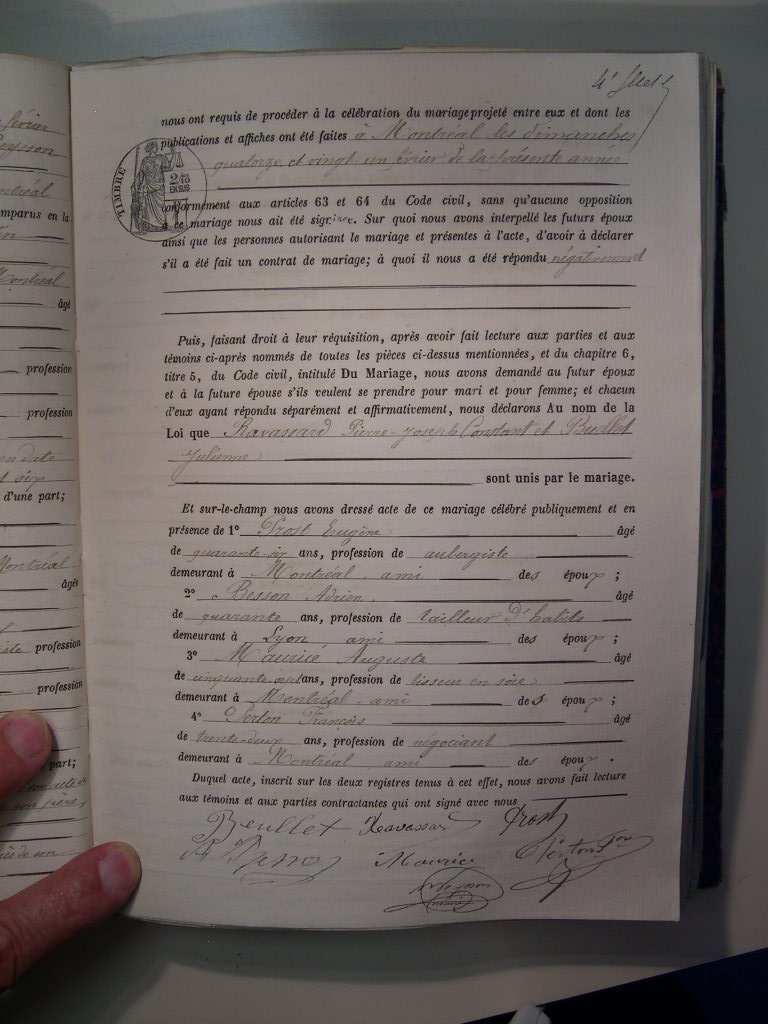 février
Montréal
comparus en la
Montréal
âgé
profession
profession
d'une part;
Montréal
âgés
profession
profession
part;
4e feuillet
nous ont requis de procéder à la célébration du mariage projeté entre eux et dont les
publications et affiches ont été faites à Montréal les dimanches
quatorze et vingt un février de la présente année
TIMBRE
conformément aux articles 63 et 64 du Code civil, sans qu'aucune opposition
à ce mariage nous ait été signifiée. Sur quoi nous avons interpellé les futurs époux
ainsi que les personnes autorisant le mariage et présentes à l'acte, d'avoir à déclarer
s'il a été fait un contrat de mariage; à quoi il nous a été répondu négativement
Puis, faisant droit à leur réquisition, après avoir fait lecture aux parties et aux
témoins ci-après nommés de toutes les pièces ci-dessus mentionnées, et du chapitre 6,
titre 5, du Code civil, intitulé Du Mariage, nous avons demandé au futur époux
et à la future épouse s'ils veulent se prendre pour mari et pour femme; et chacun
d'eux ayant répondu séparément et affirmativement, nous déclarons Au nom de la
Loi que Ravassard Pierre-Joseph Constant et Beullet
Julienne
sont unis par le mariage.
Et sur-le-champ nous avons dressé acte de ce mariage célébré publiquement et en
présence de 1° Prost Eugène âgé
de quarante-six ans, profession de aubergiste
demeurant à Montréal ami des époux ;
2° Besson Adrien âgé
de quarante ans, profession de tailleur d'habits
demeurant à Lyon ami des époux ;
3° Maurice Auguste âgé
de cinquante ans, profession de tisseur en soie
demeurant à Montréal ami des époux ;
4° Perton François âgé
de trente-deux ans, profession de négociant
demeurant à Montréal ami des époux .
Duquel acte, inscrit sur les deux registres tenus à cet effet, nous avons fait lecture
aux témoins et aux parties contractantes qui ont signé avec nous
Beullet Ravassard Prost
Maurice Perton